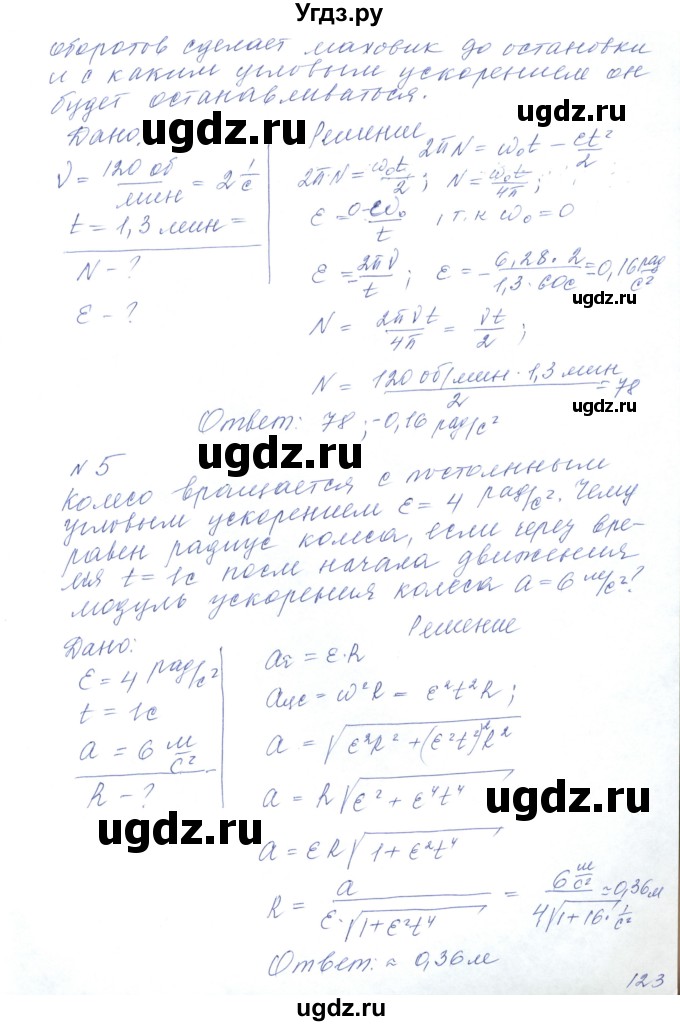 Угдз.ру
оборотов сделает маховик до остановки
и с каким угловым ускорением он
будет останавливаться.
ugdz.ru ugdz.ru ugdz.ru
Дано: Решение
2πN = ω₀t − εt²/2
ν = 120 об/мин = 2 1/с
2π·N = ω₀t/2 ; N = ω₀t/4π ;
t = 1,3 мин =
ε = 0-ω₀/t , т.к ω₀ = 0
N − ?
ε = 2πν/t ; ε = −6,28·2/1,3·60с = 0,16 рад/с²
ugdz.ru
ε − ?
N = 2πνt/4π = νt/2 ;
ugdz.ru
N = 120 об/мин · 1,3 мин/2 = 78
ugdz.ru
Ответ: 78 ; −0,16 рад/с²
ugdz.ru
№ 5
Колесо вращается с постоянным
угловым ускорением ε = 4 рад/с². Чему
равен радиус колеса, если через вре-
мя t = 1с после начала движения
модуль ускорения колеса a = 6 м/с²?
ugdz.ru ugdz.ru
Дано: Решение
ε = 4 рад/с²
aτ = ε·R
t = 1с
aцс = ω²R = ε²t²R ;
a = 6 м/с²
a = √ε²R² + (ε²t²)²R²
R − ?
a = R√ε² + ε⁴t⁴
ugdz.ru ugdz.ru
a = εR√1 + ε²t⁴
R = a/ε·√1 + ε²t⁴ = 6 м/с²/4√1 + 16· 1/с² ≈ 0,36м
ugdz.ru
Ответ: ≈ 0,36м
123
ugdz.ru